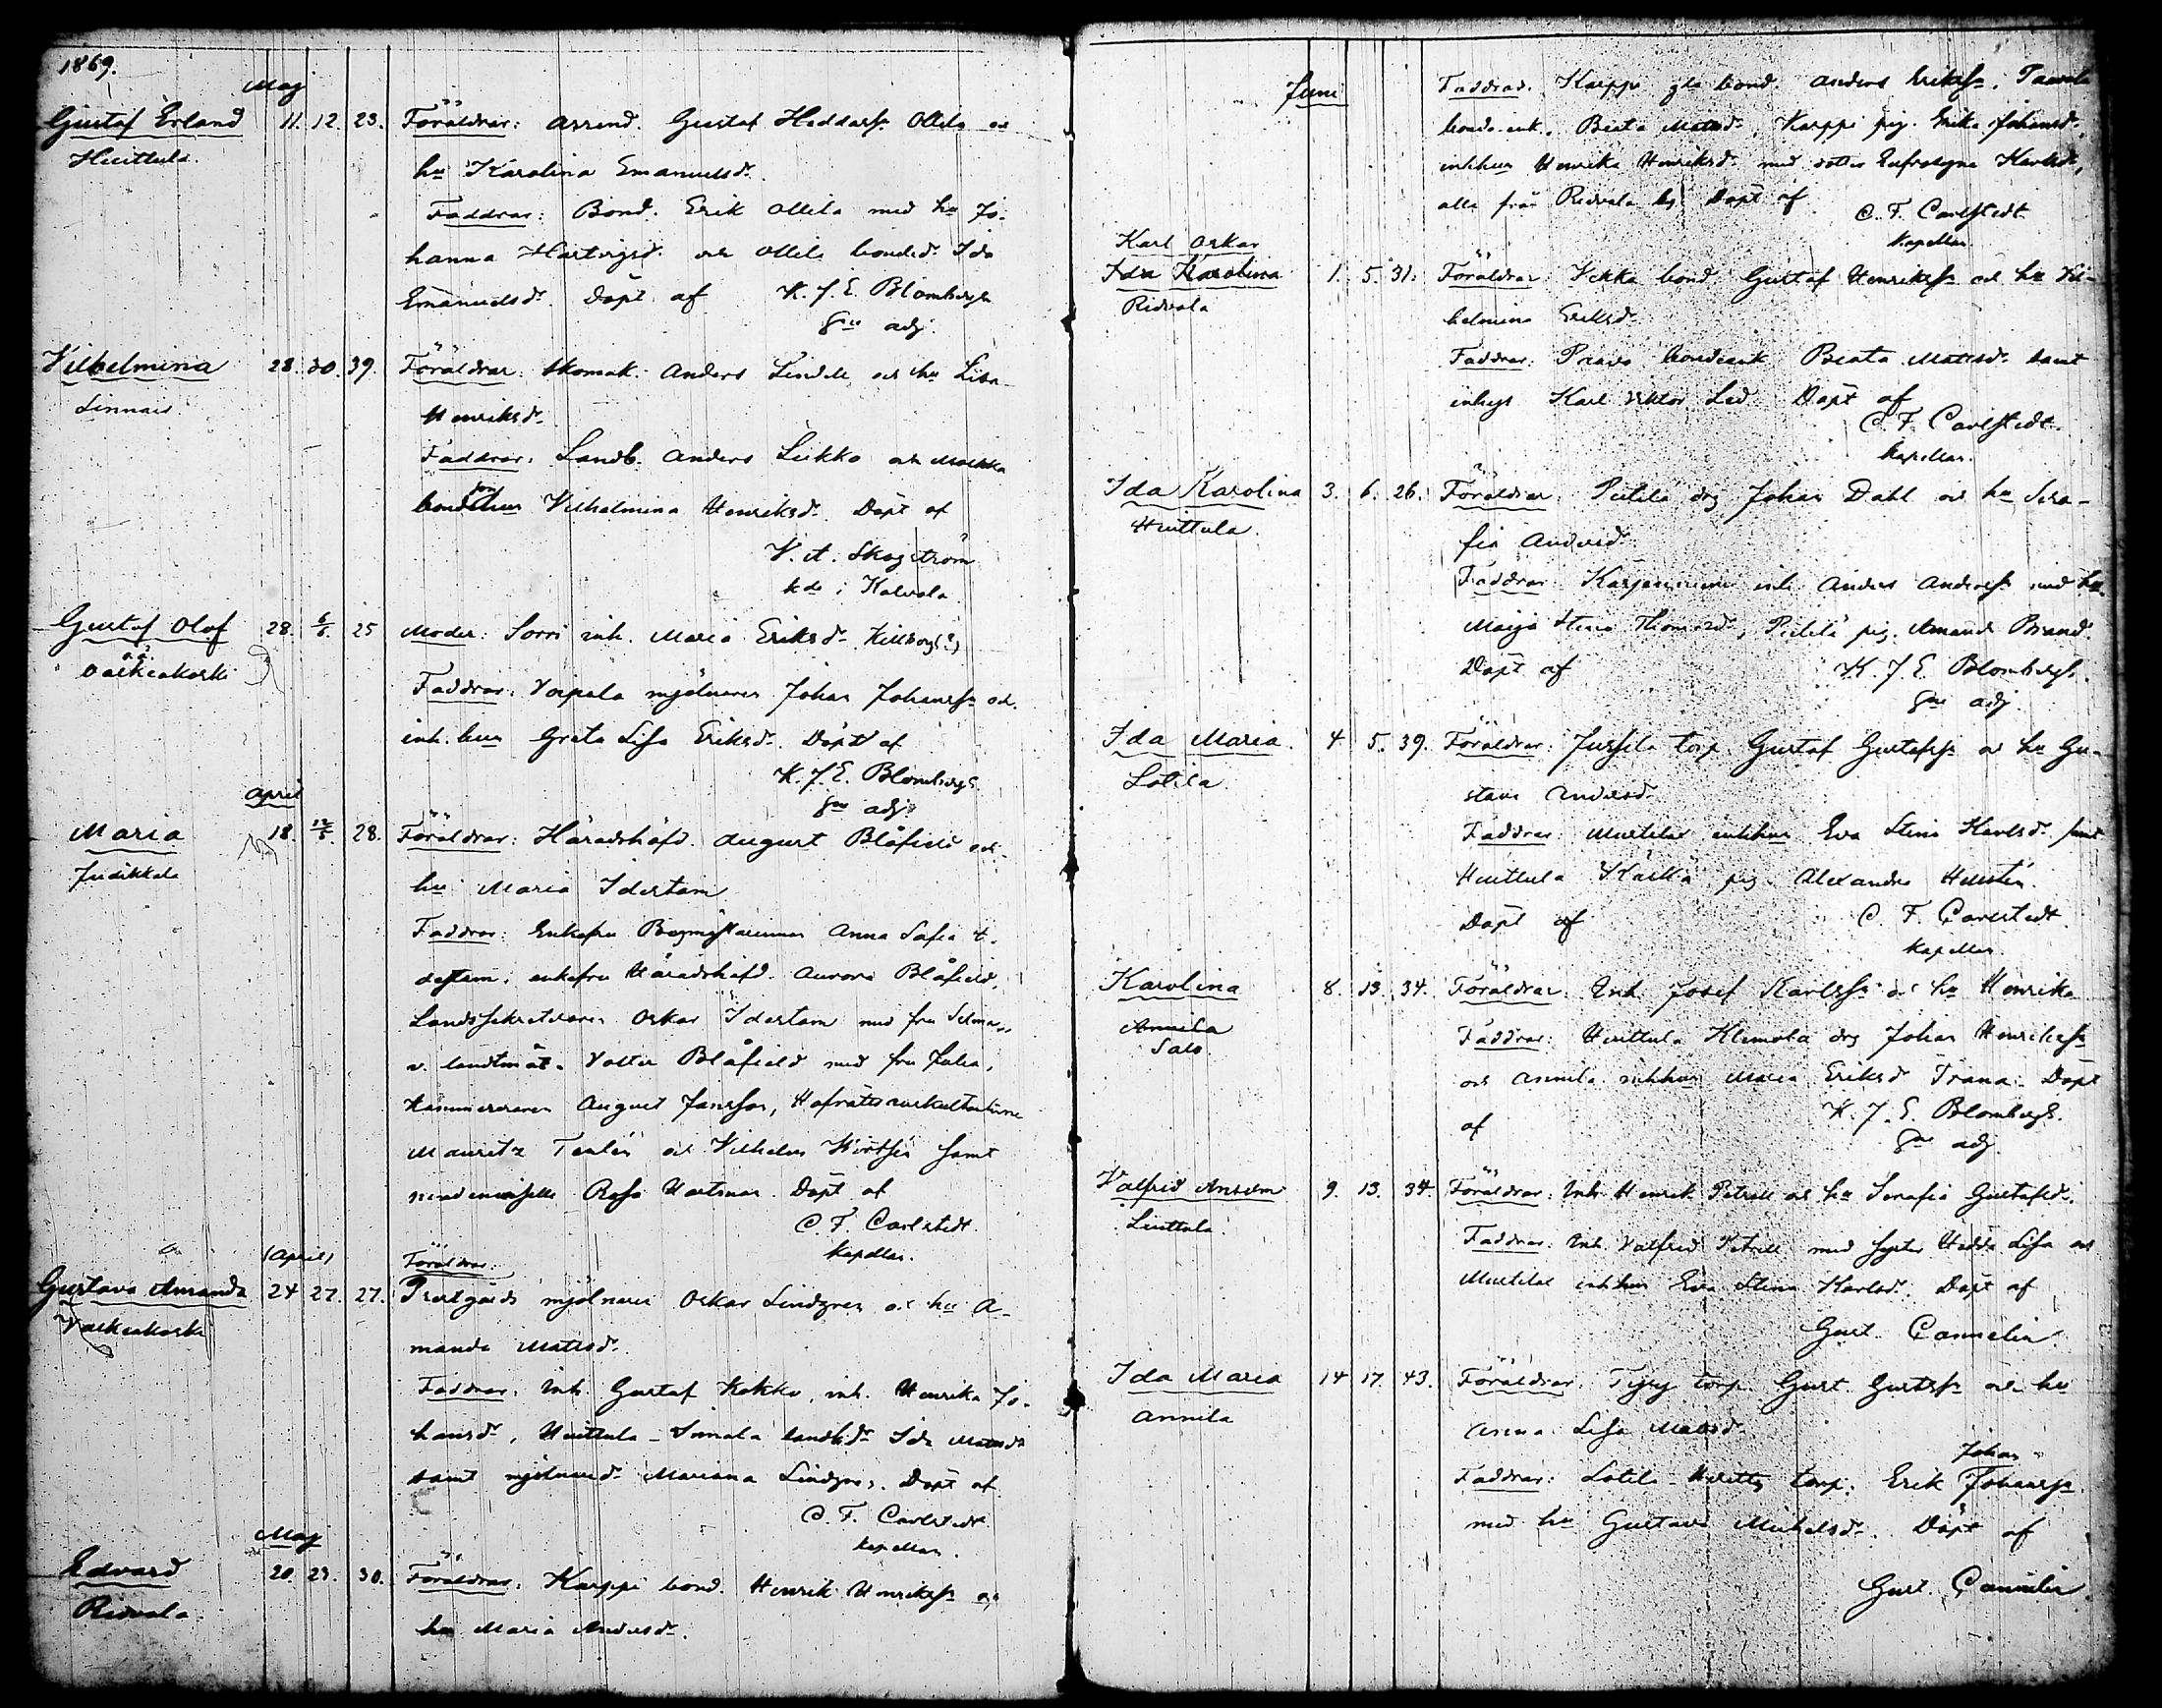 1869.
Maj
Gustaf Erland 11. 12. 23. Föräldrar: Arrend. Gustaf Heddarss. Ollila o.
Huittula. hu Karolina Emanuelsdr.
Faddrar: Bond. Erik Ollila med hu Jo-
hanna Hartvigsd. och Ollila bonded. Ida
Emanuelsdr. Döpt af K. J. E. Blombergh
gne adj.
Vilhelmina 28. 30. 39. Föräldrar: Skomak. Anders Lindell och hu Lisa
Linnais Henriksdr.
Faddrar: Landb. Anders Leikko och
bondsonhus Vilhelmina Henriksdr. Döpt af
K. A. Skogström
kde i Kalvola
Gustaf Olof 28. 6/6. 25 Moder: Sorri inh. Maria Eriksdr. Killborg(?)
o.ä.
Valkeakoski Faddrar: Voipala mjölnaren Johan Johanss. och
inh. hus Greta Lisa Eriksdr. Döpt af
K. J. E. Blombergh
gne adj.
April
Maria 18. 12/5. 28. Föräldrar: Häradshöfd. August Blåfield och
Judikkala hu Maria Idestam
Faddrar: Enkefru Borgmästarinnan Anna Sofia I-
destam, enkefru Häradshöfd. Aurora Blåfield,
Landssekreteraren Oskar Idestam med fru Selma,
v. landtmät. Volter Blåfield med fru Julia,
Kammereraren August Jansson, Hofrättsauskultanterne
Mauritz Terlén och Vilhelm samt
Rosa Hartman. Döpt af
C. F. Carlstedt.
Kapellan.
(April) Föräldrar:
Gustava Amanda 24 27. 27. Prestgårds mjölnaren Oskar Lindgren och hu A-
Valkeakoski manda Matsdr.
Faddrar: Inh. Gustaf Kokko, inh. Henrika Jo-
hansdr, Huittula-Simola landbdr. Ida Matsdr
samt mjölnared. Mariana Lindgren. Döpt af
C. F. Carlstedt.
kapellan.
Maj
Edvard 20. 23. 30. Föräldrar: Karppi bond. Henrik Henrikss. och
Ridvala. hu Maria Andersdr.
Juni
Faddrar: Karppi gla bond. Anders Erikss.,
bonde-enk. Beata Matsdr., Karppi pig. Erika Johansd.
inhhus Henrika Henriksd. med dotter Eufrosyne Karlsdr,
alla från Ridvala by. Döpt af C. F. Carlstedt.
Kapellan
Karl Oskar
Ida Karolina 1. 5. 31. Föräldrar: Vekka bond. Gustaf Henrikss. och hu Vil-
Ridvala helmina Eriksd.
Faddrar: Paavo bondeenk. Beata Matsdr. samt
inhys Karl Viktor Led. Döpt af
C. F. Carlstedt.
Kapellan.
Ida Karolina 3. 6. 26. Föräldrar: Pietilä drg Johan Dahl och hu Sera-
Huittula. fia Andersd.
Faddrar: inh. Anders Anderss. med hu
Maija Stina Thomasdr, Pietilä pig. Amanda Brand.
Döpt af K. J. E. Blombergh.
gne adj.
Ida Maria. 4 5. 39. Föräldrar: Jussila torp. Gustaf Gustafss. och hu Gu-
Lotila. stava Andersd.
Faddrar: Muttilas enkhus Eva Stina Karlsdr. samt
Huittula pig. Alexandra Hellstén.
Döpt af C. F. Carlstedt
Kapellan.
Karolina 8. 13. 34. Föräldrar: Inh. Josef Karlss. och hu Henrika
Annila Faddrar: Huittula Klemola drg Johan Henrikss.
Salo. och Annila inhhus Maria Eriksd. Trana. Döpt
af K. J. E. Blombergh.
gne adj.
Valfrid Anselm 9. 13. 34. Föräldrar: Inh. Henrik Petrell och hu Serafia Gustafsd.
Liuttula. Faddrar: Inh. Valfrid Petrell med syster Hedda Lisa och
Muttilas enkhus Eva Stina Karlsd. Döpt af
Gust. Cannelin.
Ida Maria 14 17. 43. Föräldrar: torp. Gust. Gustss. och hu
Annila Anna Lisa Matsd.
Johan
Faddrar: Lotila-Heretty torp. Erik Johanss.
med hu Gustava Mickelsdr. Döpt af
Gust. Cannelin